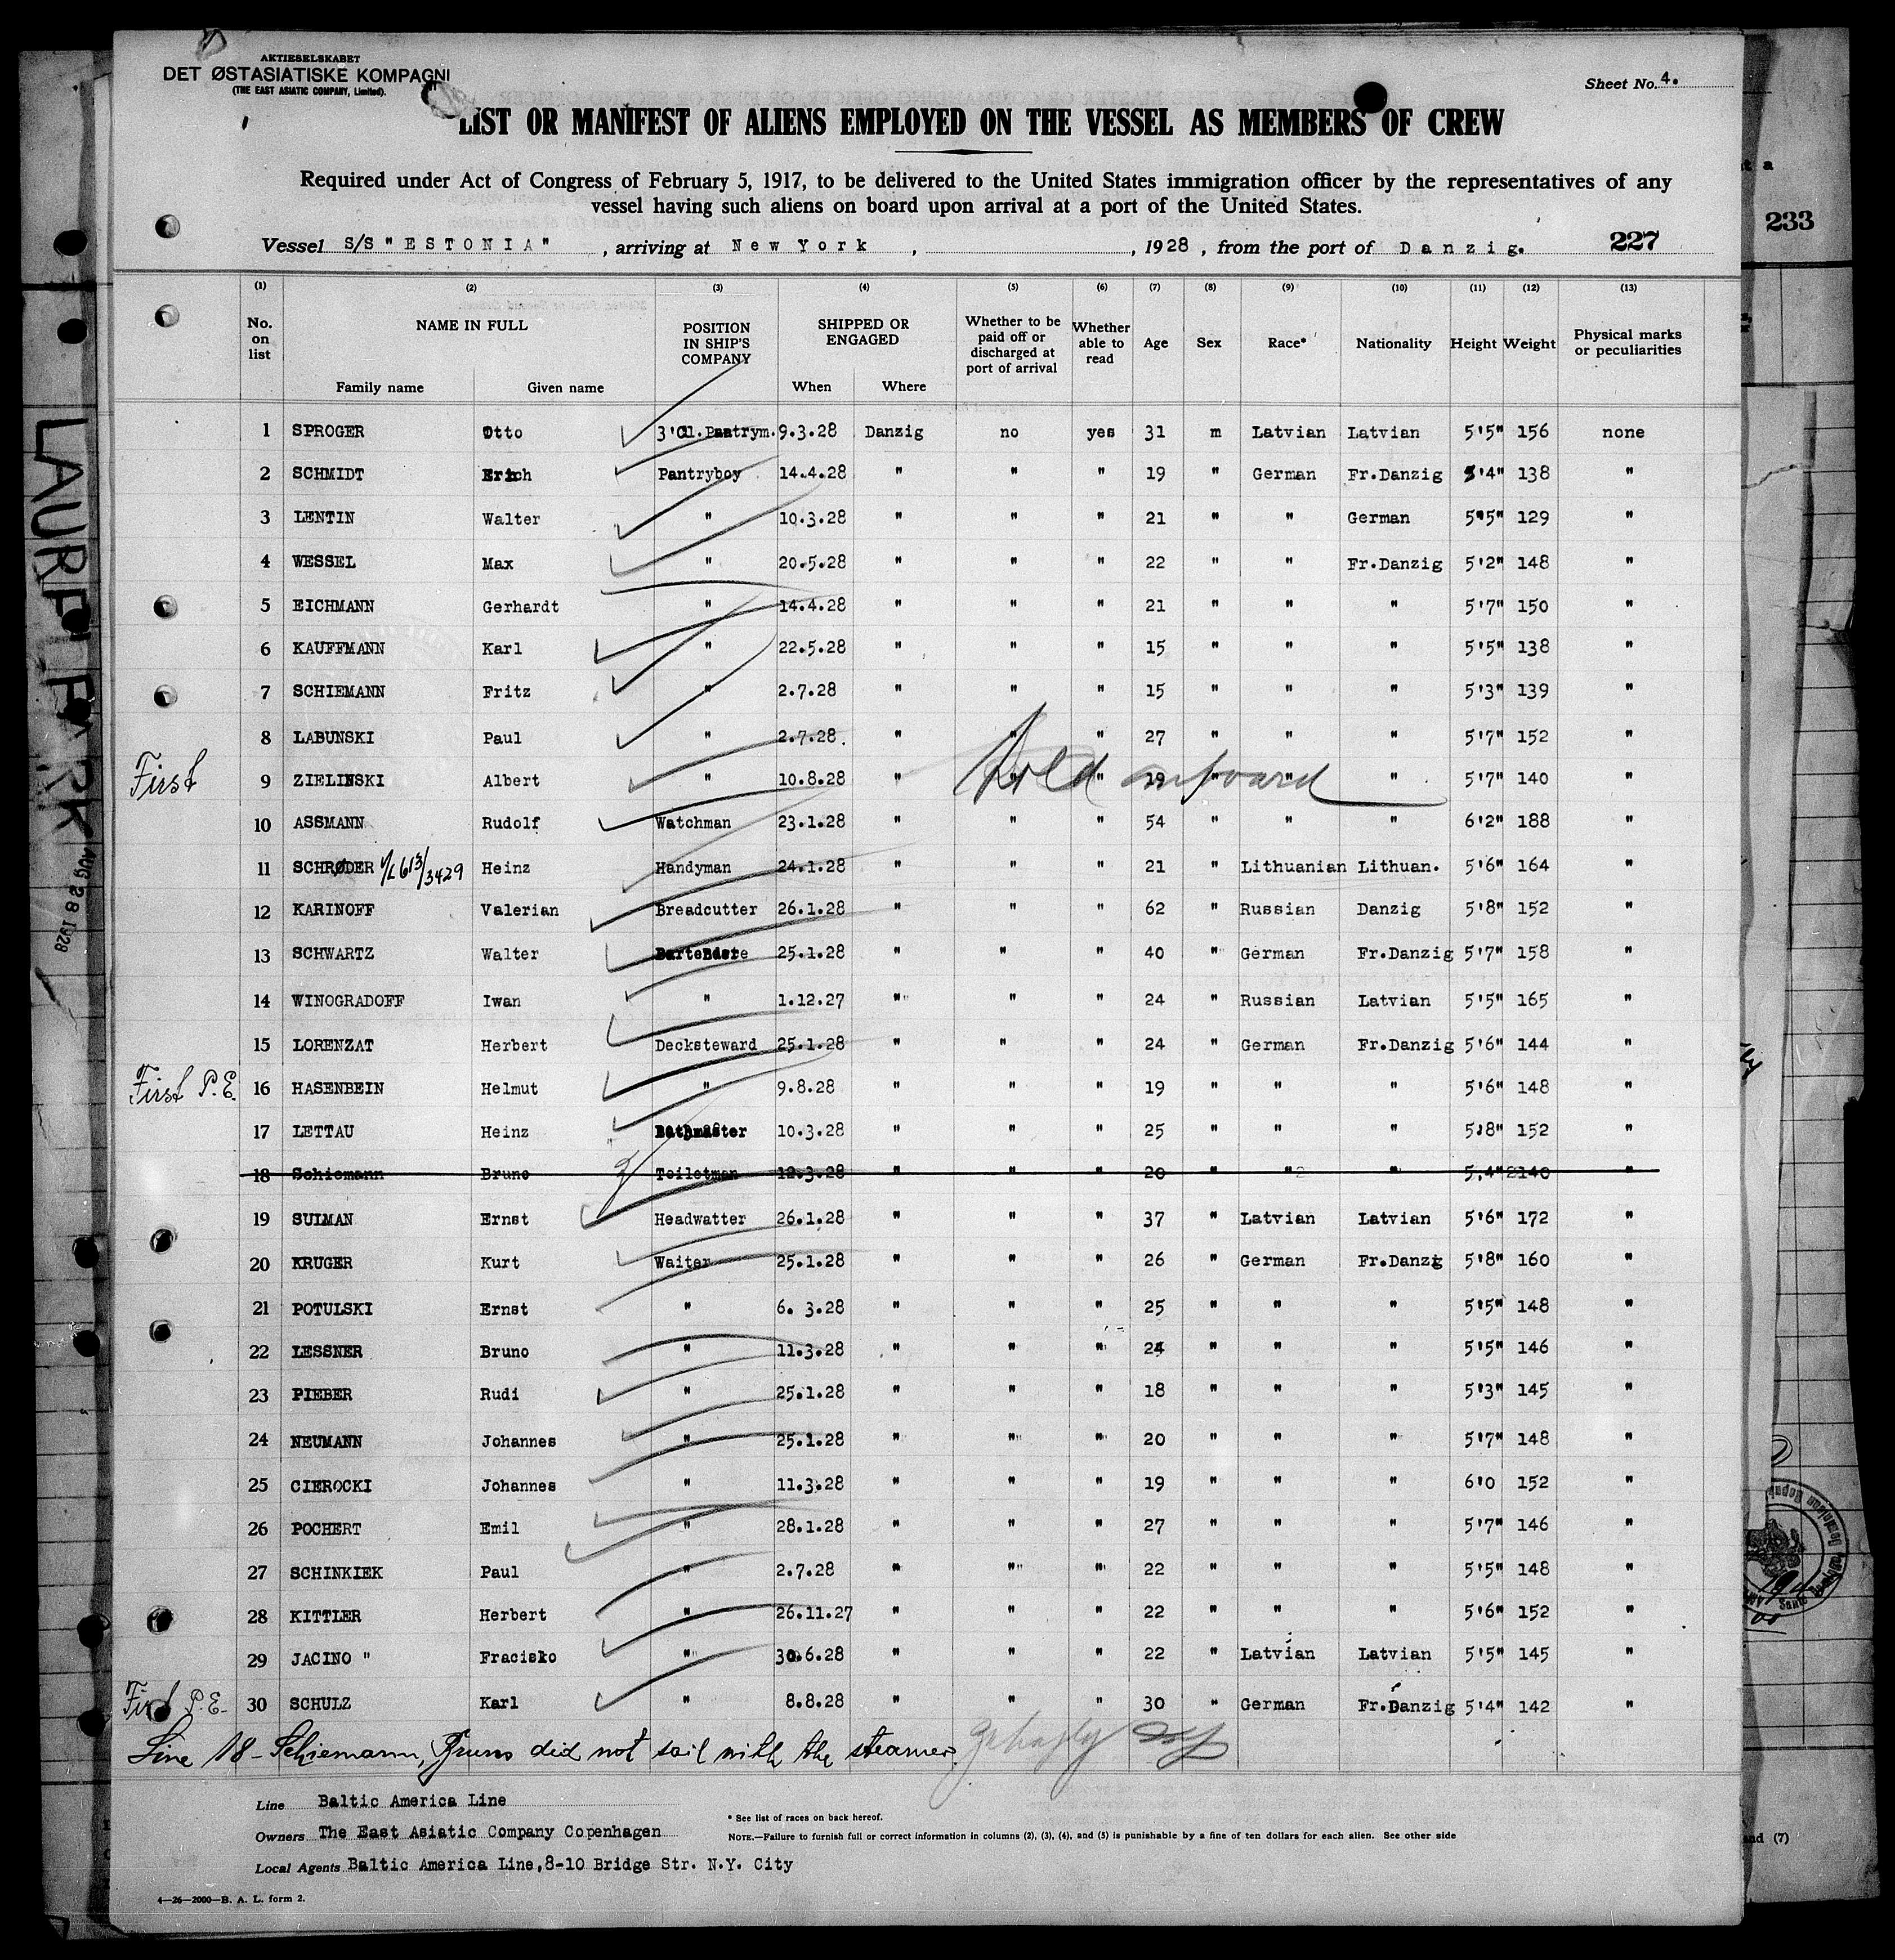 AKTIESELSKABET
DET ØSTASIATISKE KOMPAGNI
(THE EAST ASIATIC COMPANY, Limited).
Sheet No. 4.
LIST OR MANIFEST OF ALIENS EMPLOYED ON THE VESSEL AS MEMBERS OF CREW
Required under Act of Congress of February 5, 1917, to be delivered to the United States immigration officer by the representatives of any
vessel having such aliens on board upon arrival at a port of the United States.
233
Vessel S/S "ESTONIA" , arriving at New York , , 1928 , from the port of Danzig. 227
(1) (2) (3) (4) (5) (6) (7) (8) (9) (10) (11) (12) (13)
No. on list NAME IN FULL Family name Given name POSITION IN SHIP'S COMPANY SHIPPED OR ENGAGED When Where Whether to be paid off or discharged at port of arrival Whether able to read Age Sex Race* Nationality Height Weight Physical marks or peculiarities
1 SPROGER Otto 3'Cl.Pantrym. 9.3.28 Danzig no yes 31 m Latvian Latvian 5'5" 156 none
2 SCHMIDT Erich Pantryboy 14.4.28 " " " 19 " German Fr.Danzig 5'4" 138 "
3 LENTIN Walter " 10.3.28 " " " 21 " " German 5'5" 129 "
4 WESSEL Max " 20.5.28 " " " 22 " " Fr.Danzig 5'2" 148 "
5 EICHMANN Gerhardt " 14.4.28 " " " 21 " " " 5'7" 150 "
6 KAUFFMANN Karl " 22.5.28 " " " 15 " " " 5'5" 138 "
7 SCHIEMANN Fritz " 2.7.28 " " " 15 " " " 5'3" 139 "
8 LABUNSKI Paul " 2.7.28. " " " 27 " " " 5'7" 152 "
First 9 ZIELINSKI Albert " 10.8.28 " " " 19 " " " 5'7" 140 "
Held on board
10 ASSMANN Rudolf Watchman 23.1.28 " " " 54 " " " 6'2" 188 "
11 SCHRØDER V/L 613/3429 Heinz Handyman 24.1.28 " " " 21 " Lithuanian Lithuan. 5'6" 164 "
12 KARINOFF Valerian Breadcutter 26.1.28 " " " 62 " Russian Danzig 5'8" 152 "
13 SCHWARTZ Walter 25.1.28 " " " 40 " German Fr.Danzig 5'7" 158 "
14 WINOGRADOFF Iwan " 1.12.27 " " " 24 " Russian Latvian 5'5" 165 "
15 LORENZAT Herbert Decksteward 25.1.28 " " " 24 " German Fr.Danzig 5'6" 144 "
First P.E. 16 HASENBEIN Helmut " 9.8.28 " " " 19 " " " 5'6" 148 "
17 LETTAU Heinz Bathmaster 10.3.28 " " " 25 " " " 5'8" 152 "
18 Schiemann Bruno Toiletman 12.3.28 " " " 20 " " " 5,4" 140 "
19 SULMAN Ernst Headwatter 26.1.28 " " " 37 " Latvian Latvian 5'6" 172 "
20 KRUGER Kurt Waiter 25.1.28 " " " 26 " German Fr.Danzg 5'8" 160 "
21 POTULSKI Ernst " 6. 3.28 " " " 25 " " " 5'5" 148 "
22 LESSNER Bruno " 11.3.28 " " " 24 " " " 5'5" 146 "
23 PIEBER Rudi " 25.1.28 " " " 18 " " " 5'3" 145 "
24 NEUMANN Johannes " 25.1.28 " " " 20 " " " 5'7" 148 "
25 CIEROCKI Johannes " 11.3.28 " " " 19 " " " 6'0 152 "
26 POCHERT Emil " 28.1.28 " " " 27 " " " 5'7" 146 "
27 SCHINKIEK Paul " 2.7.28 " " " 22 " " " 5'5" 148 "
28 KITTLER Herbert " 26.11.27 " " " 22 " " " 5'6" 152 "
29 JACINO " Fracisko " 30.6.28 " " " 22 " Latvian Latvian 5'5" 145 "
First P.E. 30 SCHULZ Karl " 8.8.28 " " " 30 " German Fr.Danzig 5'4" 142 "
Line 18 - Schiemann, Bruno did not sail with the steamer.
Line Baltic America Line
* See list of races on back hereof.
Owners The East Asiatic Company Copenhagen
NOTE.—Failure to furnish full or correct information in columns (2), (3), (4), and (5) is punishable by a fine of ten dollars for each alien. See other side
and (7)
Local Agents Baltic America Line,8-10 Bridge Str. N.Y. City
4—26—2000—B. A. L. form 2.
AUG 28 1928